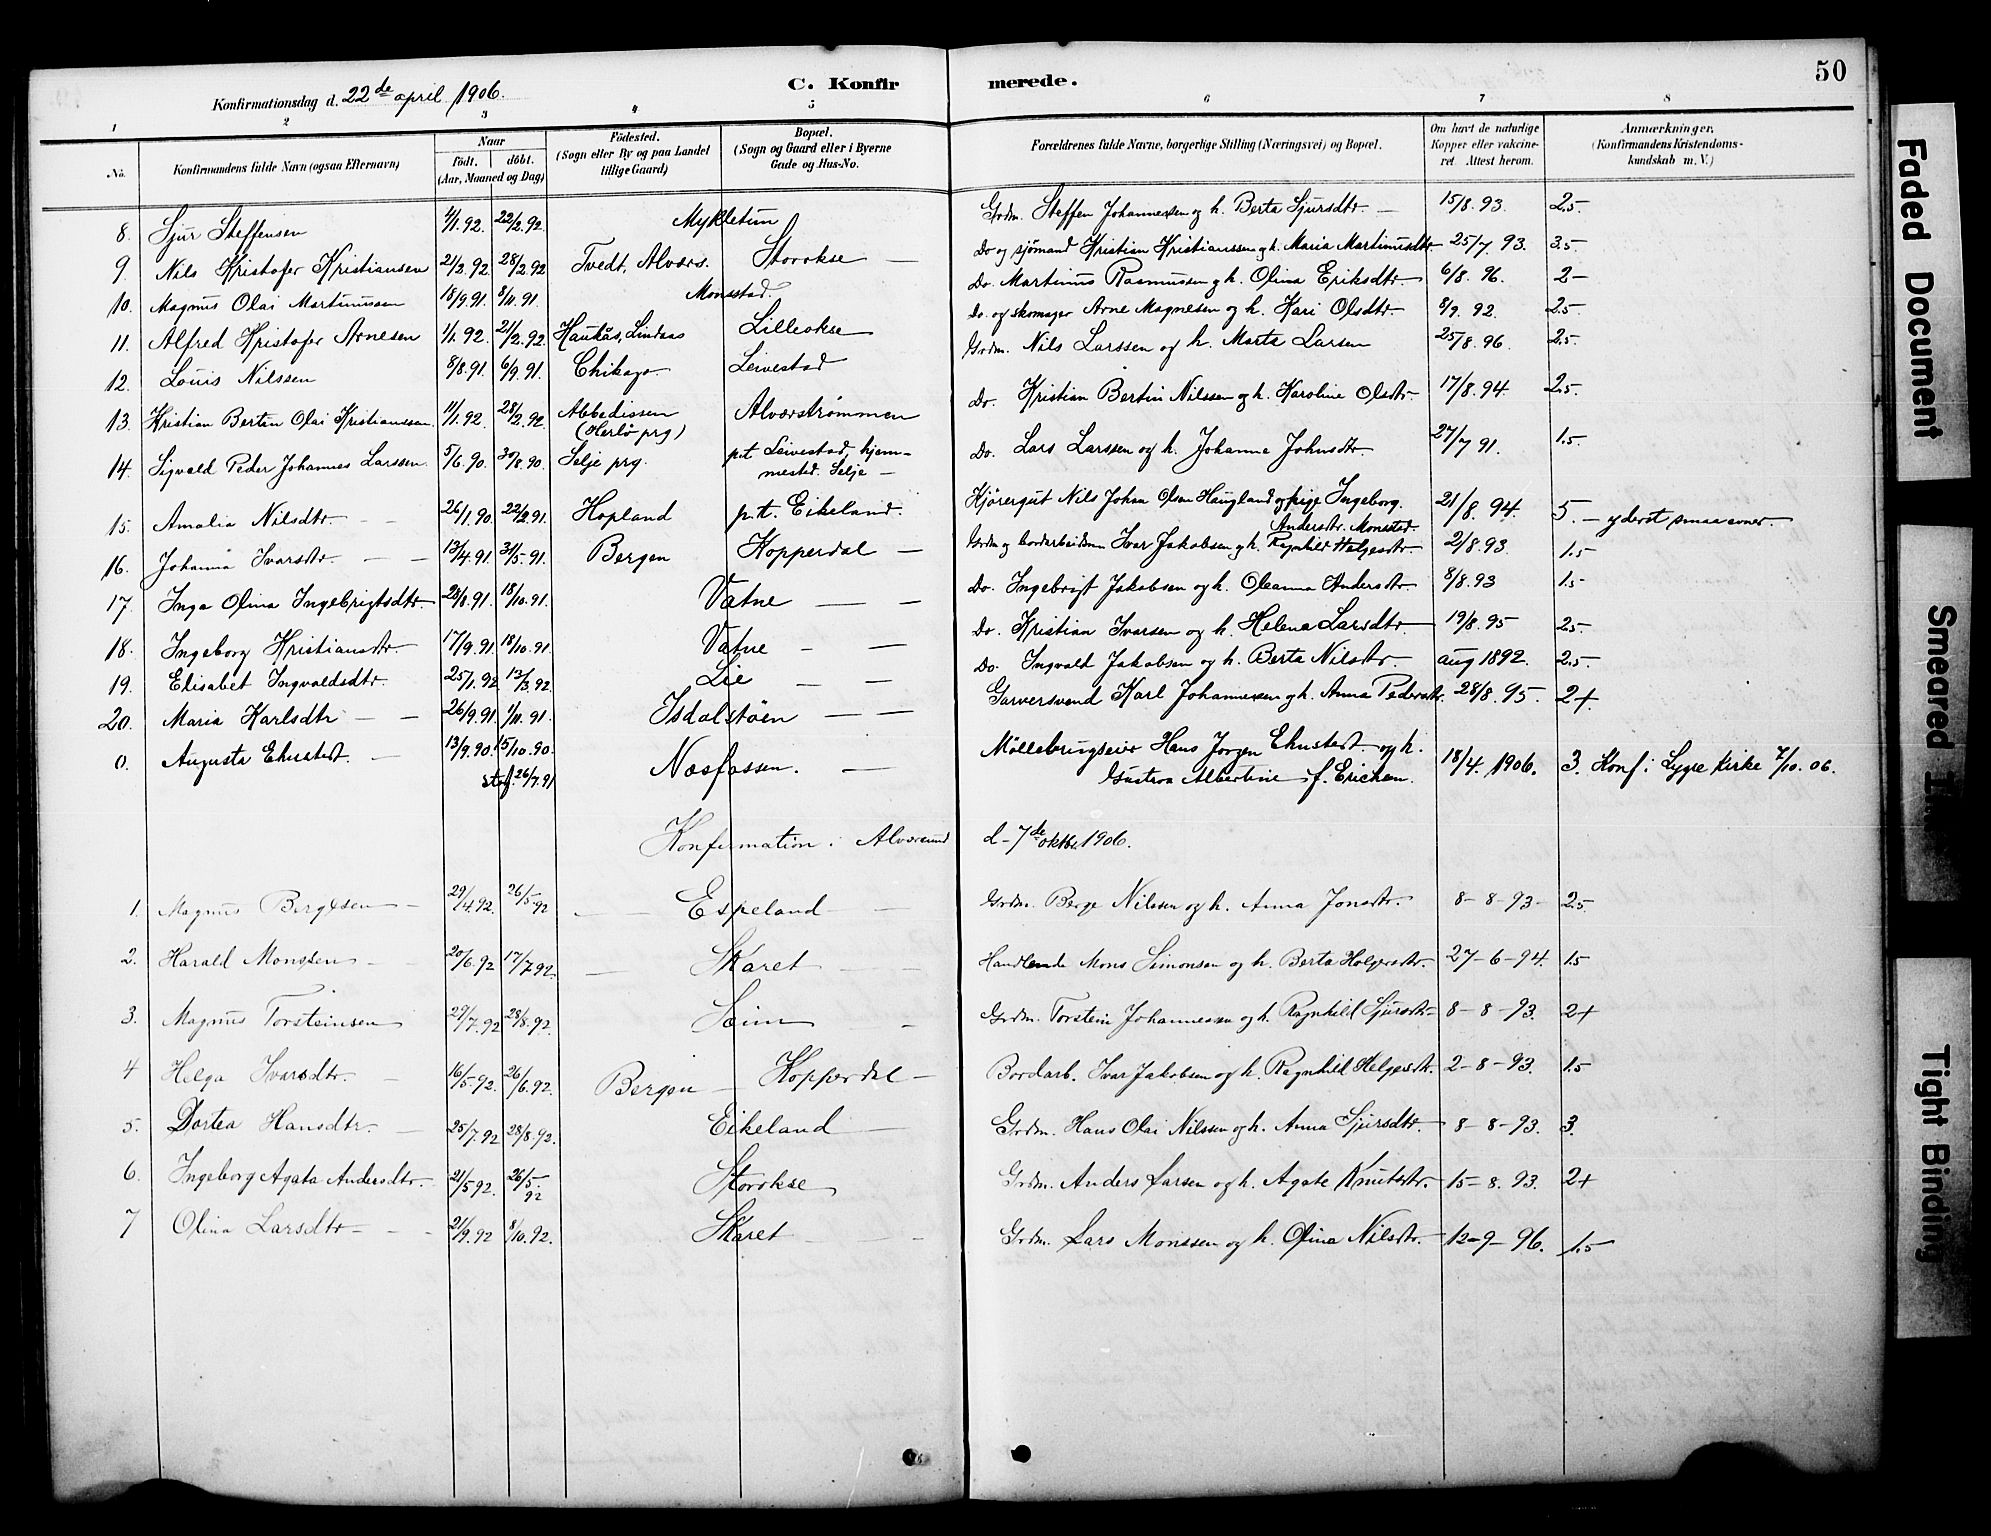 50
Konfirmationsdag d. 22de april 1906.
C. Konfirmerede.
1 2 3 4 5 6 7 8
No. Konfirmandens fulde Navn (ogsaa Efternavn) Naar født. døbt. (Aar, Maaned og Dag) Fødested. (Sogn eller By og paa Landet tillige Gaard) Bopæl. (Sogn og Gaard eller i Byerne Gade og Hus-No. Forældrenes fulde Navne, borgerlige Stilling (Næringsvei) og Bopæl. Om havt de naturlige Kopper eller vakcineret. Attest herom. Anmærkninger. (Konfirmandens Kristendomskundskab m. V.)
8. Sjur Steffensen 4/1.92. 22/2.92. Mykletun Grdm. Steffen Johannessen og h. Berta Sjursdtr. 15/8.93. 2.5
9. Nils Kristofer Kristiansen 21/2.92 28/2.92 Tvedt, Alvers. Storokse Do og sjømand Kristian Kristianssen og h. Maria Martinusdtr 25/7 93. 3.5
10. Magnus Olai Martinussen 18/9.91. 8/11.91. Monstad. Do. Martinus Rasmussen og h. Olina Eriksdtr. 6/8. 96. 2-
11. Alfred Kristofer Arnesen 1/1.92. 21/2.92. Haukås, Lindaas Lilleokse Do. og skomager Arne Magnesen og h. Kari Olsdtr. 8/9. 92. 2.5
12. Louis Nilssen 8/8.91. 6/9.91. Chikago. Leivestad Grdm. Nils Larssen og h. Marta Larsen 25/8.96. 2.5
13. Kristian Bertin Olai Kristianssen. 11/1.92 28/2.92. Abbedissen (Herlø prg) Alverstrømmen Do. Kristian Bertin Nilssen og h. Karoline Olsdtr. 17/8.94. 2.5
14. Sigvald Peder Johannes Larssen. 5/6.90. 30/8.90. Selje prg. p.t Leivestad, hjemmested. Selje Do. Lars Larssen og h. Johanna Johnsdtr. 27/7 91. 1.5
15. Amalia Nilsdtr. 26/1.90. 22/2.91. Hopland p.t. Eikeland. Kjøregut Nils Johan Olsen Haugland og pige Ingeborg Andersdtr. Monstad. 21/8. 94. 5. - yderst smaa evner.
16. Johanna Ivarsdtr. 13/4.91. 31/5.91. Bergen Kopperdal Grdm og bordarbeidsm Ivar Jakobsen og h. Ragnhild Helgesdtr. 2/8.93. 1.5
17. Inga Olina Ingebrigtsdtr. 18/10.91. Vatne Do. Ingebrigt Jakobsen og h. Oleanna Andersdtr. 8/8.93 1.5
18. Ingeborg Kristiansdtr. 17/9.91. 18/10.91. Vatne Do. Kristian Ivarsen og h. Helena Larsdtr. 19/8.95 2.5
19. Elisabet Ingvaldsdtr. 25/1.92 13/3.92. Lie Do. Ingvald Jakobsen og h. Berta Nilsdtr. aug 1892. 2.5.
20. Maria Karlsdtr 26/9.91. 1/11.91. Isdalstøen Garversvend Karl Johannessen og h. Anna Pedersdtr. 28/8.95. 2+
0. Augusta Ehnstedt. 13/9.90. 15/10.90. stf. 26/7.91 Næsfossen. Møllebrugseier Hans Jørgen Ehnstedt og h. Gustava Albertine f. Erichsen. 18/4. 1906. 3. Konf i Lygre kirke 7/10.06.
Konfirmation i Alversund d. 7de oktbr. 1906.
1. Magnus Bergesen 29/4.92. 26/5 92 Espeland Grdm. Berge Nilssen og h. Anna Jonsdtr. 8-8-93- 2.5.
2. Harald Monssen 20/6.92 17/7.92 Skaret Handlende Mons Simonsen og h. Berta Helgesdtr. 27-6-94. 1.5
3. Magnus Torsteinsen 29/7.92 28/8.92. Seim Grdm. Torstein Johannessen og h. Ragnhild Sjursdtr 8-8-93. 2+
4 Helga Ivarsdtr. 16/5.92. 26/6.92. Bergen Kopperdal Bordarb. Ivar Jakobsen og h. Ragnhild Helgesdtr. 2-8-93. 1.5
5. Dortea Hansdtr. 25/7.92 28/8.92. Eikeland Grdm. Hans Olai Nilssen og h. Anna Sjursdtr. 8-8-93. 3.
6. Ingeborg Agata Andersdtr. 21/5 92. 26/5. 92 Storokse Grdm. Anders Larsen og h. Agate Knutsdtr. 15-8.93. 2+
7 Olina Larsdtr 21/9.92 8/10.92. Skaret Grdm. Lars Monssen og h. Olina Nilsdtr. 12-9-96. 1.5
Faded Document
Smeared
Tight Binding